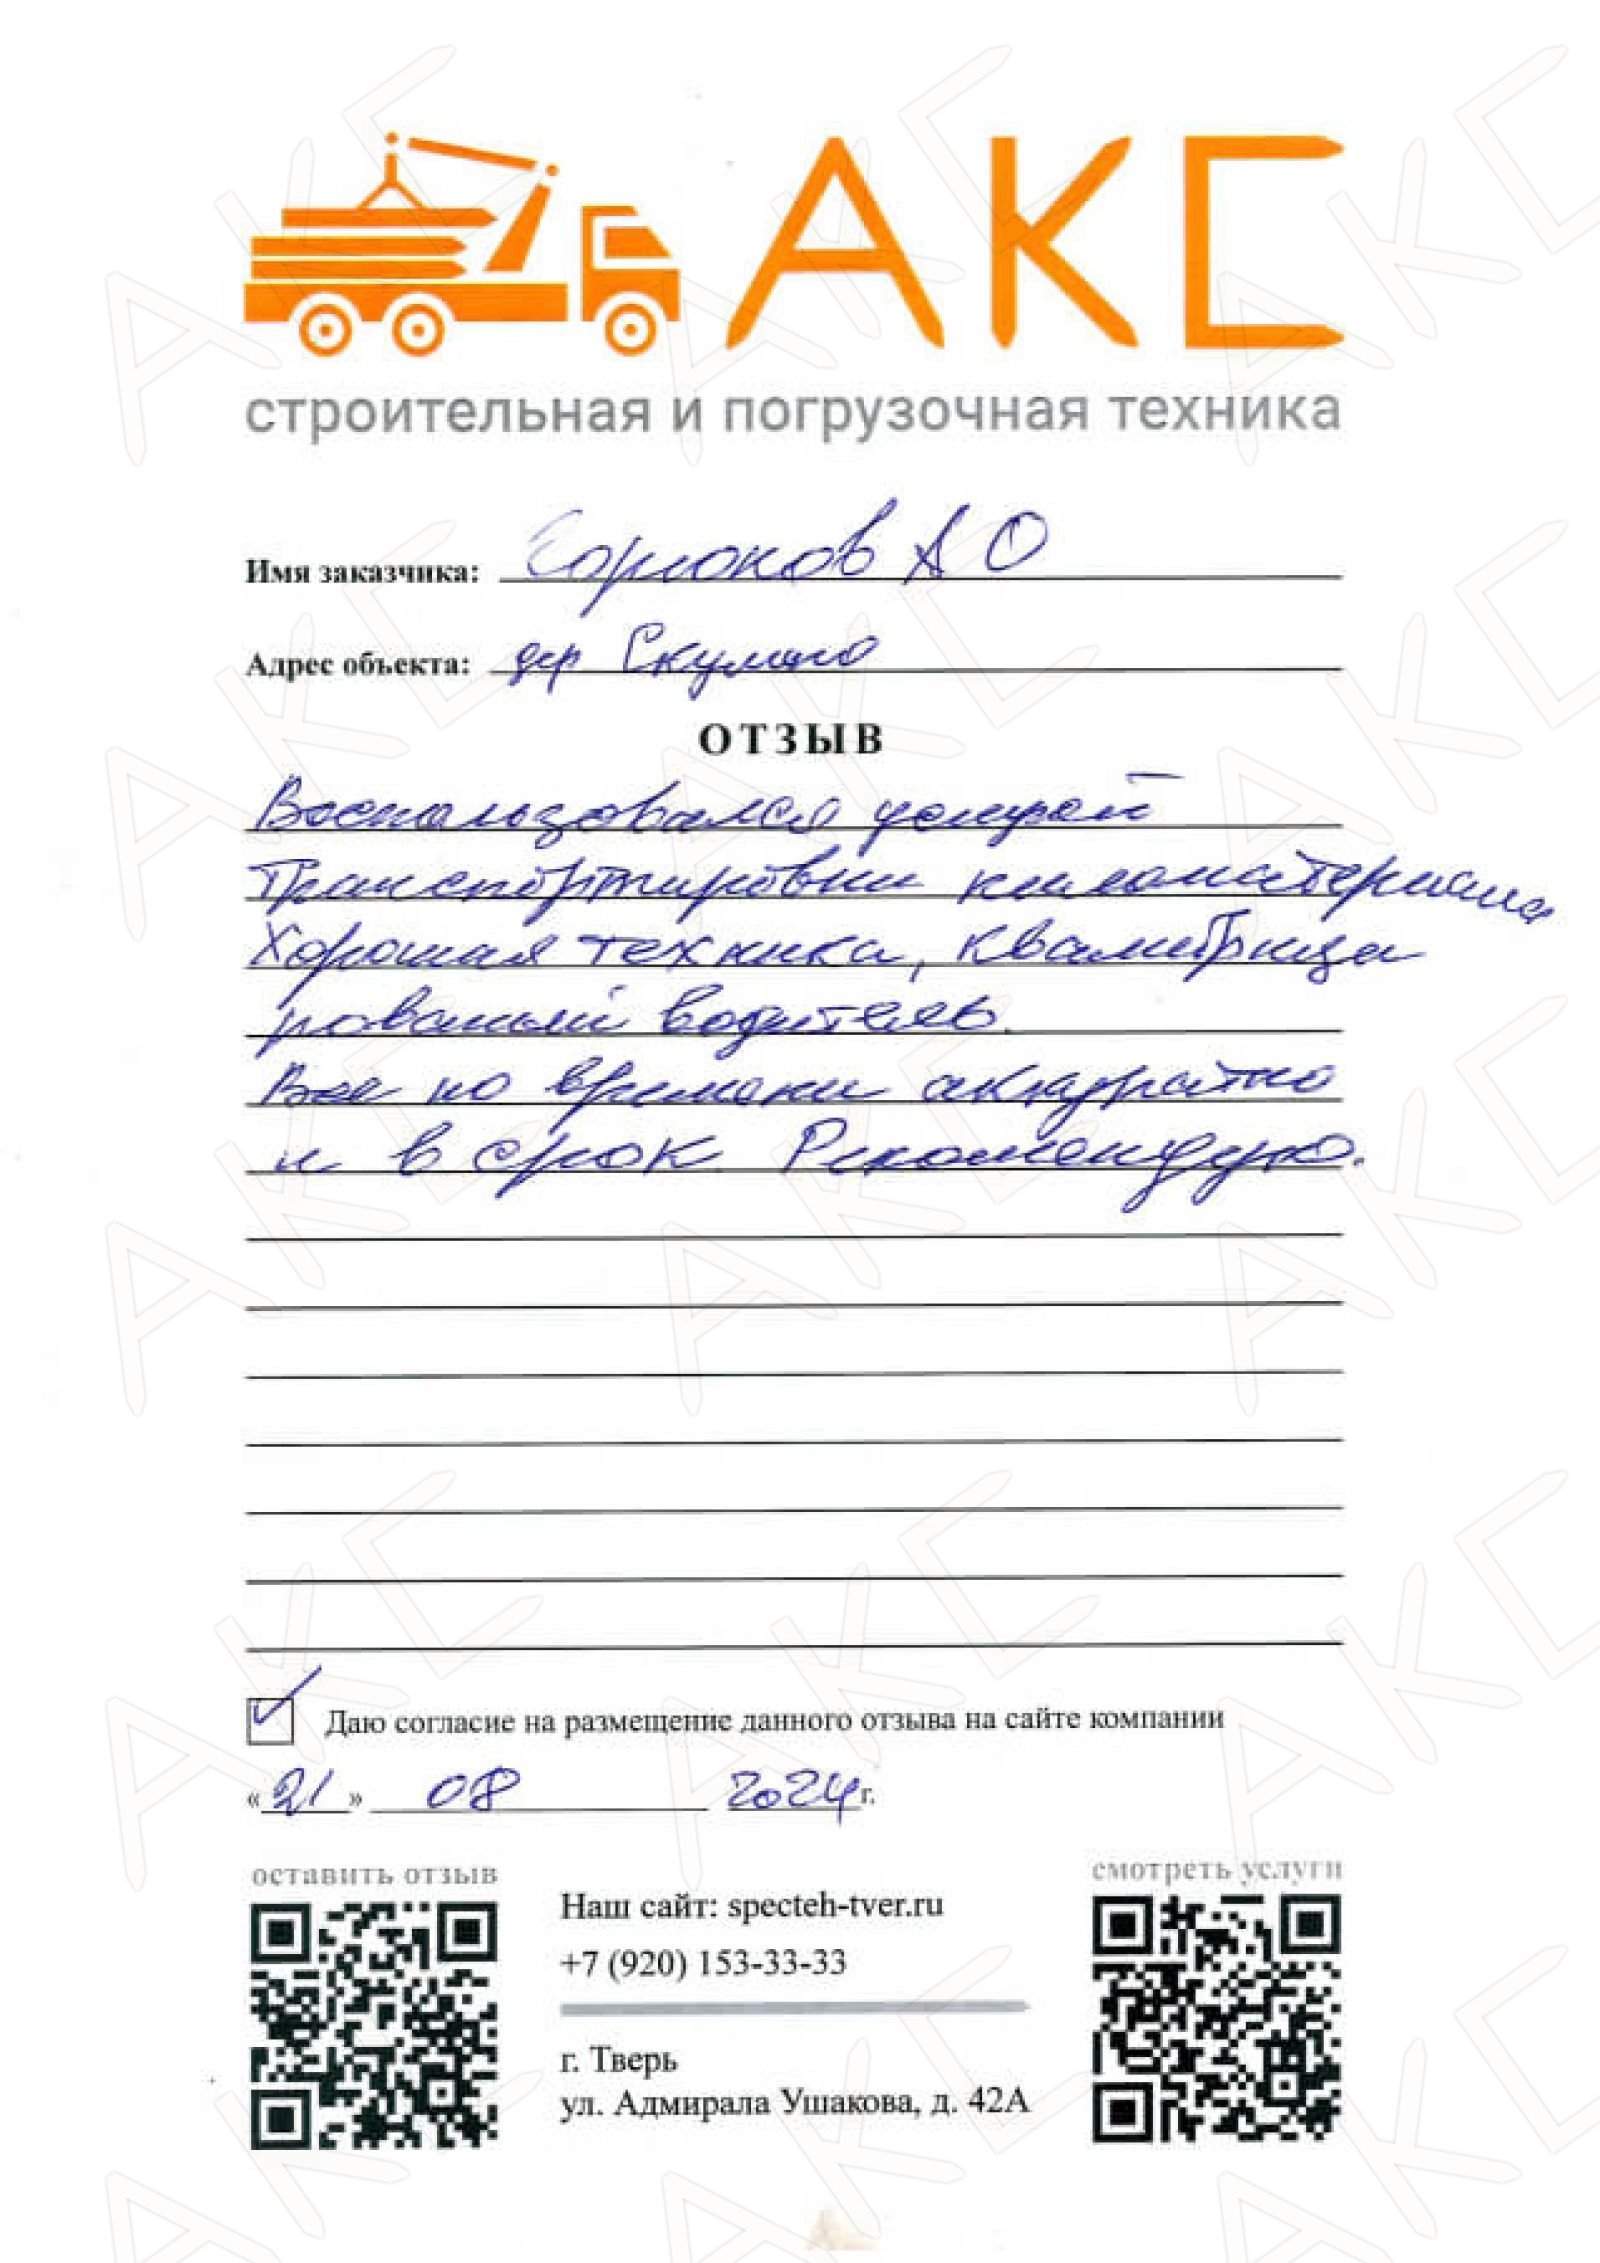 АКС
строительная и погрузочная техника
Имя заказчика: А О
Адрес объекта: дер
ОТЗЫВ
Воспользовался услугой
Транспортировки пиломатериала
Хорошая техника, квалифици
рованый водитель.
Все по времени аккуратно
и в срок Рекомендую.
Даю согласие на размещение данного отзыва на сайте компании
«21» 08 2024 г.
оставить отзыв
смотреть услуги
Наш сайт: specteh-tver.ru
+7 (920) 153-33-33
г. Тверь
ул. Адмирала Ушакова, д. 42А